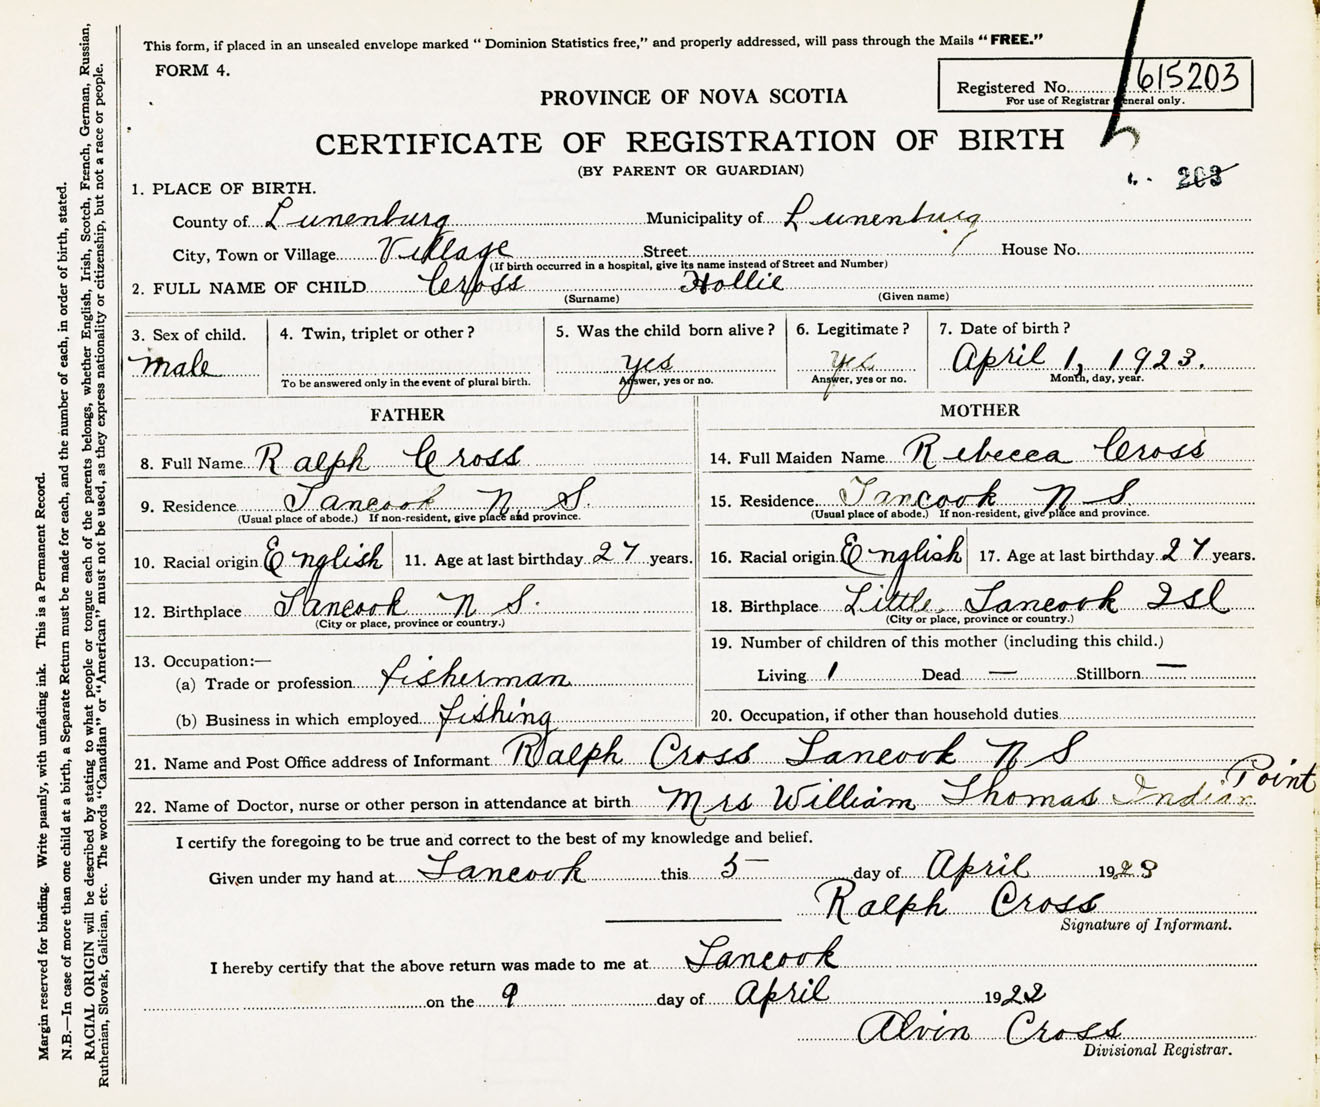 This form, if placed in an unsealed envelope marked "Dominion Statistics free," and properly addressed, will pass through the Mails "FREE."
FORM 4.
Registered No. 615203
For use of Registrar General only.
PROVINCE OF NOVA SCOTIA
CERTIFICATE OF REGISTRATION OF BIRTH
(BY PARENT OR GUARDIAN)
203
1. PLACE OF BIRTH.
County of Lunenburg Municipality of Lunenburg
City, Town or Village Village Street House No.
(If birth occurred in a hospital, give its name instead of Street and Number)
2. FULL NAME OF CHILD Cross Hollie
(Surname) (Given name)
3. Sex of child. 4. Twin, triplet or other? 5. Was the child born alive? 6. Legitimate? 7. Date of birth?
male yes yes April 1, 1923.
To be answered only in the event of plural birth. Answer, yes or no. Answer, yes or no. Month, day, year.
FATHER
8. Full Name Ralph Cross
9. Residence Tancook N. S.
(Usual place of abode.) If non-resident, give place and province.
10. Racial origin English 11. Age at last birthday 27 years.
12. Birthplace Tancook N S.
(City or place, province or country.)
13. Occupation:—
(a) Trade or profession fisherman
(b) Business in which employed fishing
MOTHER
14. Full Maiden Name Rebecca Cross
15. Residence Tancook N S
(Usual place of abode.) If non-resident, give place and province.
16. Racial origin English 17. Age at last birthday 27 years.
18. Birthplace Little Tancook Isl
(City or place, province or country.)
19. Number of children of this mother (including this child.)
Living 1 Dead — Stillborn —
20. Occupation, if other than household duties
21. Name and Post Office address of Informant Ralph Cross Tancook N S
22. Name of Doctor, nurse or other person in attendance at birth Mrs William Thomas Indian Point
I certify the foregoing to be true and correct to the best of my knowledge and belief.
Given under my hand at Tancook this 5 day of April 1923
Ralph Cross
Signature of Informant.
I hereby certify that the above return was made to me at Tancook
on the 9 day of April 1922
Alvin Cross
Divisional Registrar.
Margin reserved for binding. Write plainly, with unfading ink. This is a Permanent Record.
N.B.—In case of more than one child at a birth, a Separate Return must be made for each, and the number of each, in order of birth, stated.
RACIAL ORIGIN will be described by stating to what people or tongue each of the parents belongs, whether English, Irish, Scotch, French, German, Russian,
Ruthenian, Slovak, Galician, etc. The words "Canadian" or "American" must not be used, as they express nationality or citizenship, but not a race or people.